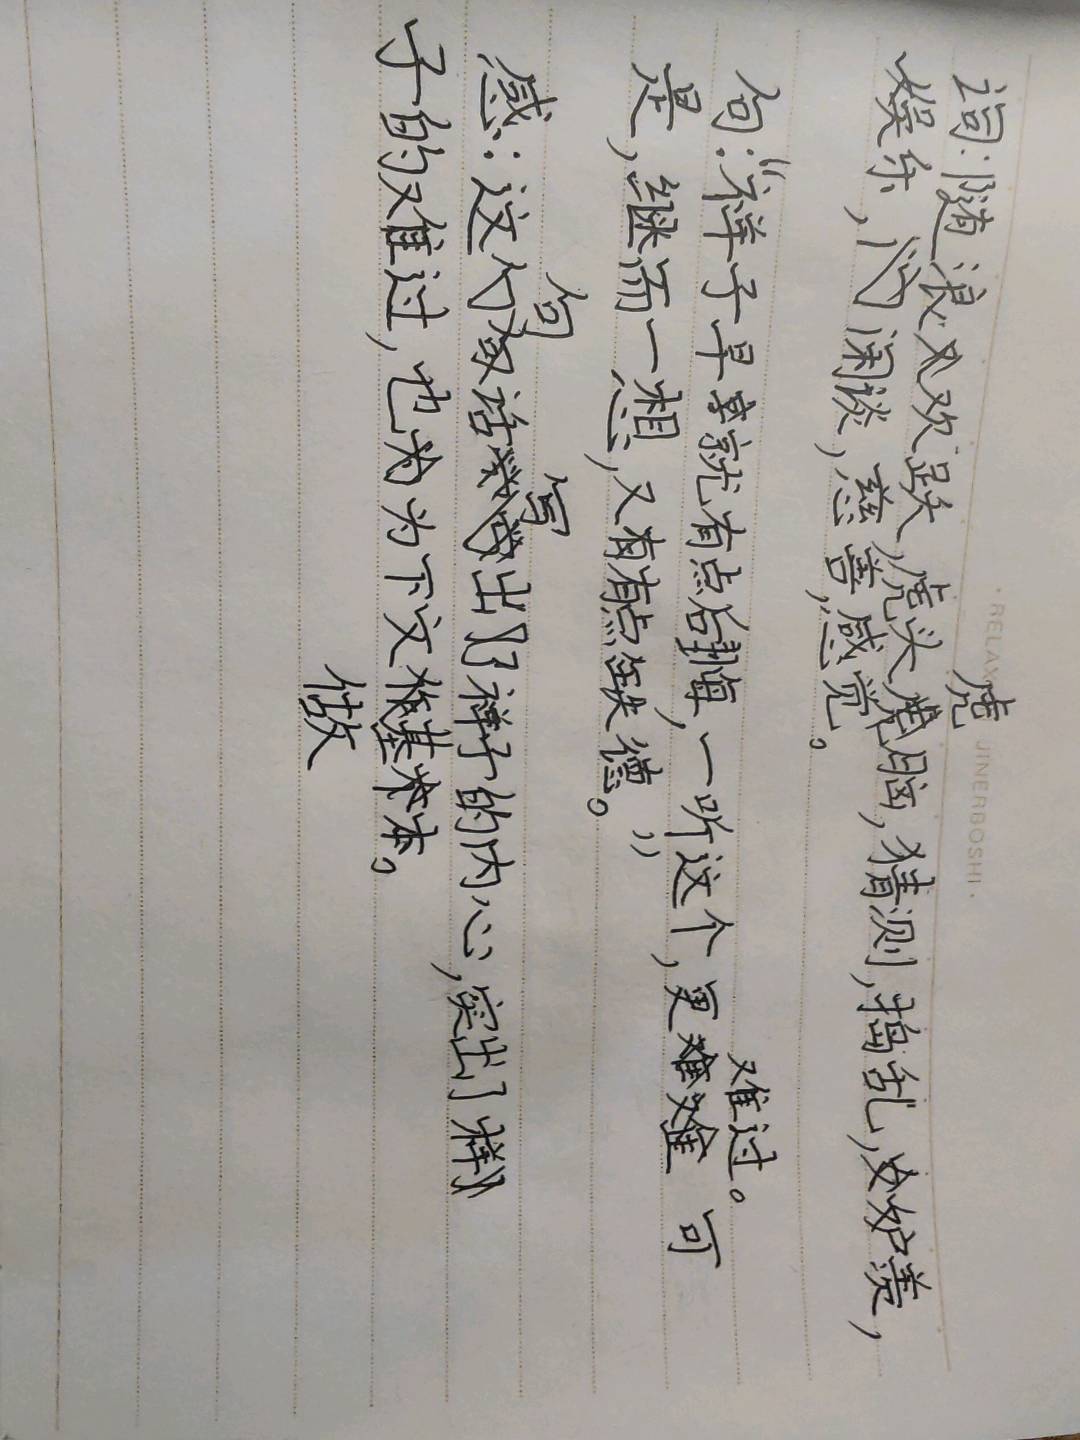 RELAX JINERBOSHI
词:随浪欢跃,虎头虎脑,猜测,捣乱,妒羡,
娱乐,闲谈,慈善,感觉。
句:“祥子早就有点后悔,一听这个,更难过。可
是,继而一想,又有点缺德。”
感:这句话写出了祥子的内心,突出了祥
子的难过,也为下文做基本。